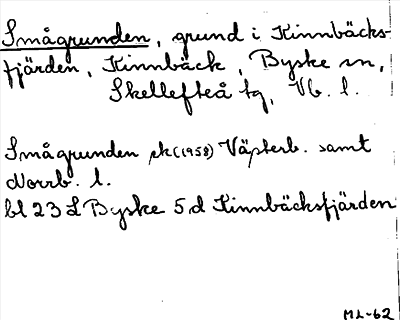 Smågrunden, grund i Kinnbäcks-
fjärden, Kinnbäck, Byske sn,
Skellefteå tg, Vb. l.
Smågrunden sk (1958) Västerb. samt
Norrb. l.
bl 23 L Byske 5 d Kinnbäcksfjärden
ML-62